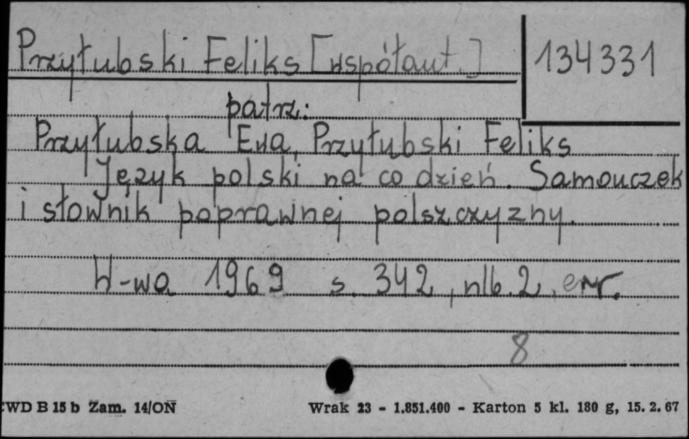 Przyłubski Feliks [współaut.]
134331
patrz:
Przyłubska Ewa, Przyłubski Feliks
Język polski na co dzień. Samouczek
i słownik poprawnej polszczyzny.
W-wa 1969 s. 342, nlb. 2, err.
8
WD B 15 b Zam. 14/ON
Wrak 23 - 1.851.400 - Karton 5 kl. 180 g, 15. 2. 67